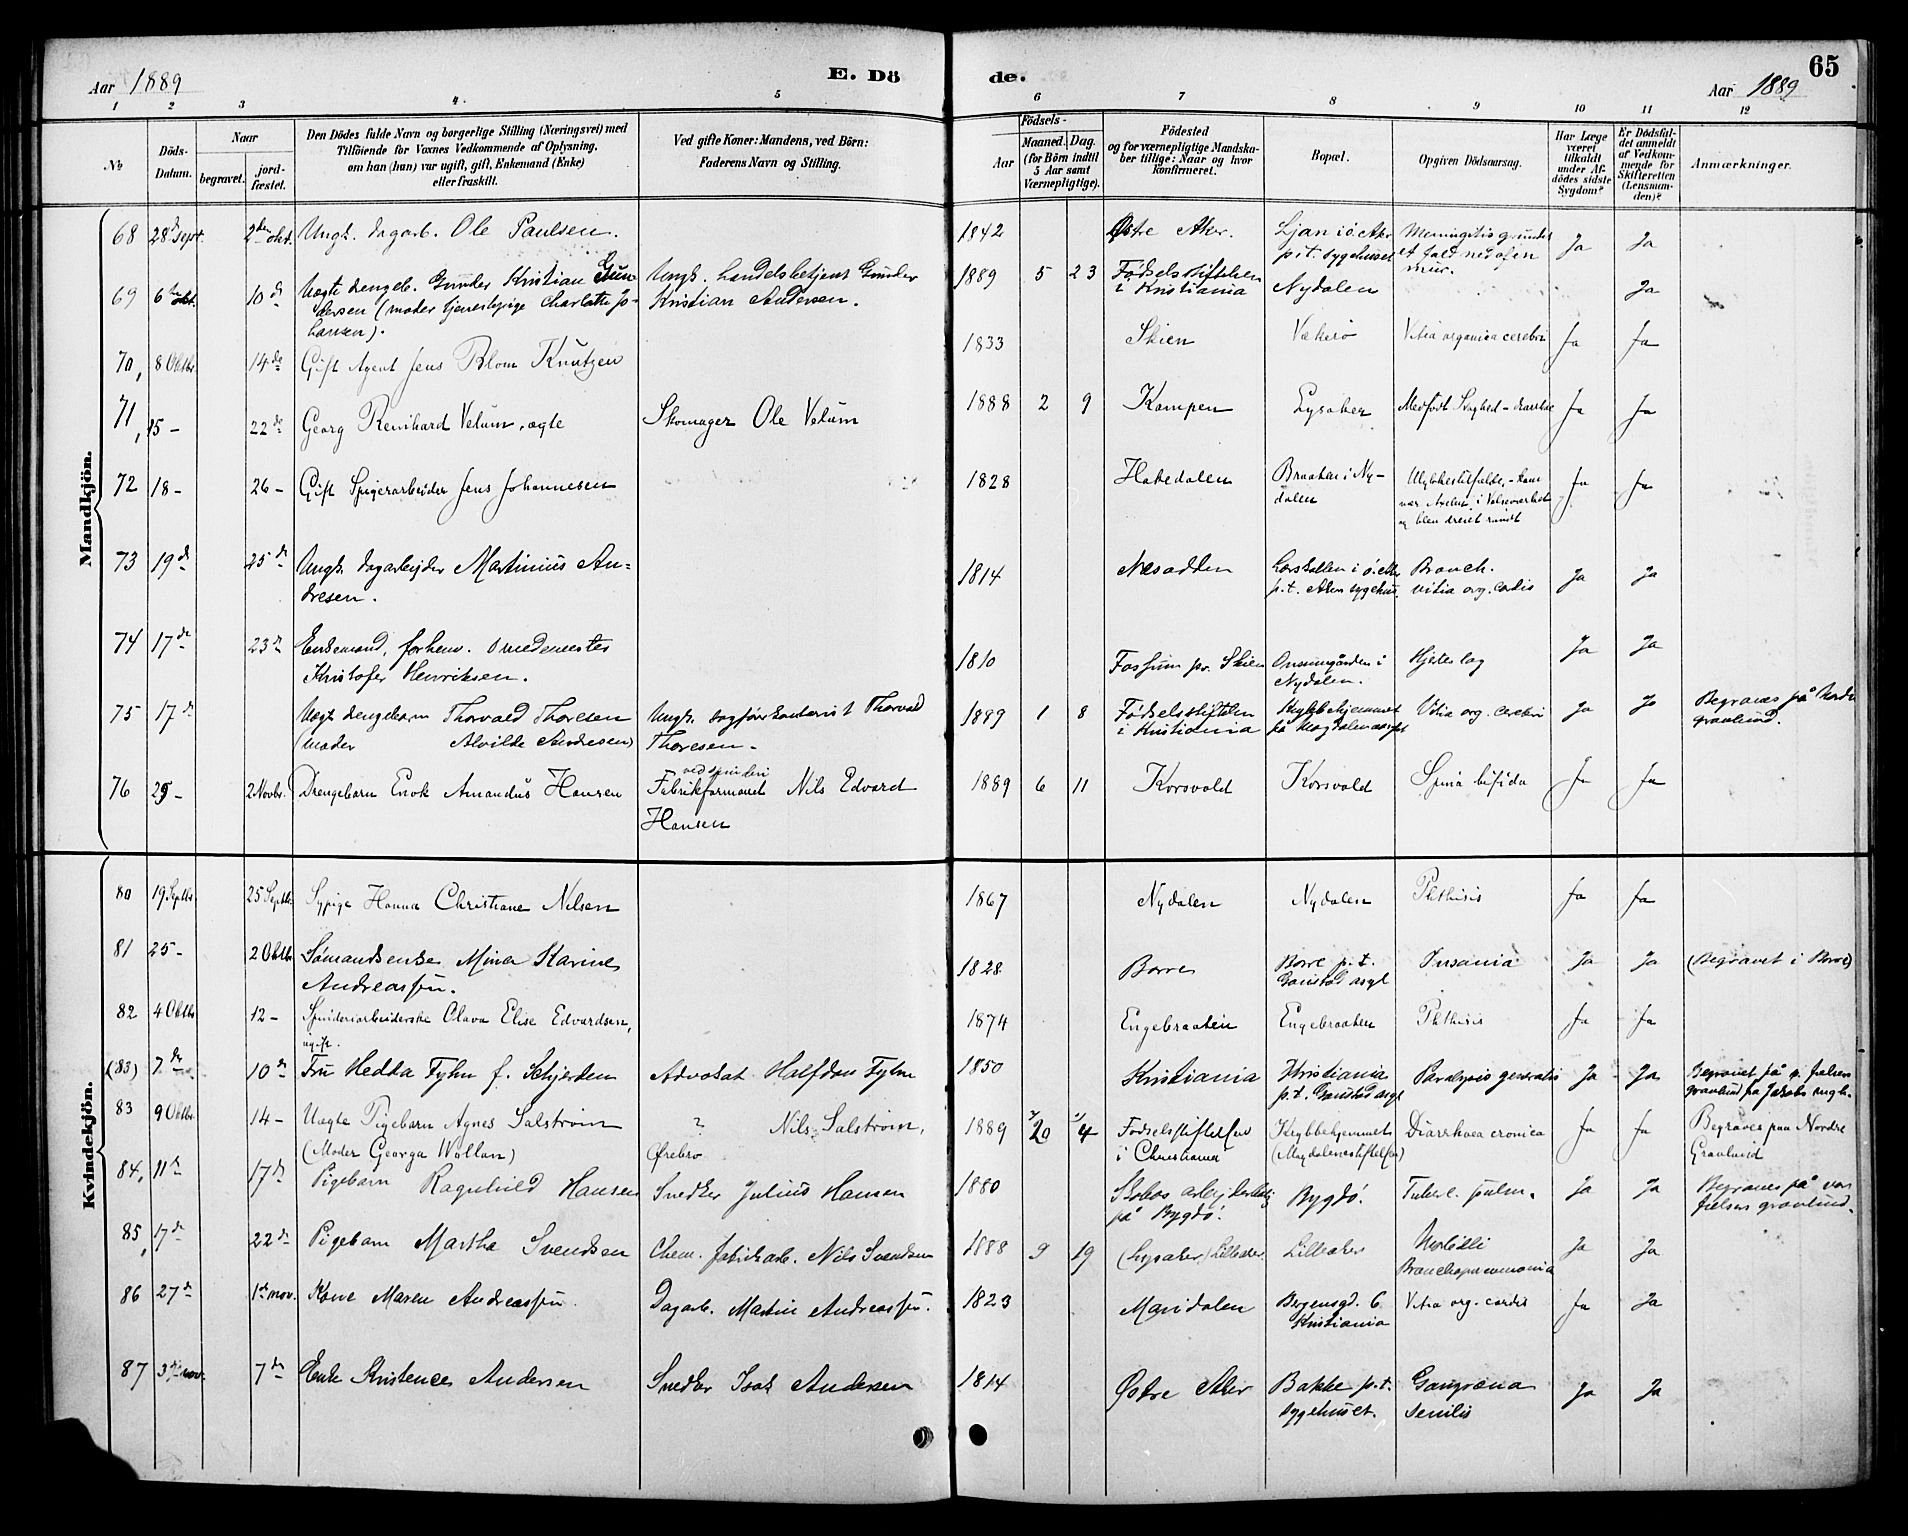 Aar 1889
E. Dö
de.
Aar 1889
65
1 2 3 4. 5 6 7 8 9 10 11 12
№
Döds-
Datum.
Naar
begravet.
jord-
fæstet.
Den Dödes fulde Navn og borgerlige Stilling (Næringsvei) med
Tilföiende for Voxnes Vedkommende af Oplysning,
om han (hun) var ugift, gift, Enkemand (Enke)
eller fraskilt.
Ved gifte Koner: Mandens, ved Börn:
Faderens Navn og Stilling.
Födsels-
Aar
Maaned.
Dag.
(for Börn indtil
5 Aar samt
Værnepligtige).
Födested
og for værnepligtige Mandska-
ber tillige: Naar og hvor
konfirmeret.
Bopæl.
Opgiven Dödsaarsag.
Har Læge
været
tilkaldt
under Af-
dödes sidste
Sygdom?
Er Dödsfal-
det anmeldt
af Vedkom-
mende for
Skifteretten
(Lensman-
den)?
Anmærkninger.
Mandkjön.
68 28de sept. 2den okt. Ungk. dagarb. Ole Paulsen. 1842 Østre Aker. Ljan i ö. Aker
p.t. sygehuset Meningitis grundet
et fald ned af en
mur. Ja Ja
69 6te okt. 10de Uægte drengeb. Gunder Kristian Gun-
dersen (moder tjenestepige Charlotte Jo-
hansen). Ungk. handelsbetjent Gunder
Kristian Andersen. 1889 5 23 Fødselsstiftelsen
i Kristiania Nydalen Ja
70, 8 Oktbr. 14de Gift Agent Jens Blom Knutzen 1833 Skien Vækerö Vitia organica cerebri Ja Ja
71, 15 - 22de Georg Reinhard Velum, ægte Skomager Ole Velum 1888 2 9 Kampen Lysaker Medfödt Svaghed - diarrhae Ja Ja
72 18 - 26 - Gift Spigerarbeider Jens Johannesen 1828 Hakedalen Braaten i Ny-
dalen Ulykkestilfælde, - kom
nær Axelen i Valseværket
og blev dreiet rundt Ja Ja
73 19de 25de Ungk. dagarbejder Martinius An-
dresen. 1814 Næsodden i ö. Aker
p.t. Aker sygehus. Bronch.
vitia org. cordis Ja Ja
74 17de 23de Enkemand, forhenv. smedemester
Kristofer Henriksen. 1810 Fossum pr. Skien Onsumgården i
Nydalen. Hjerteslag Ja Ja
75 17de Uægt. drengebarn Thorvald Thoresen
(moder Alvilde Andresen) Ungk. sagførerkontorist Thorvald
Thoresen. 1889 1 8 Fødselsstiftelsen
i Kristiania Krybbehjemmet
på Magdalenaasyl Vitia org. cerebri Ja Ja Begraves på Nordre
gravlund.
76 25 - 2 Novbr. Drengebarn Enok Amandus Hansen ved spinderi
Fabrikformand Nils Edvard
Hansen 1889 6 11 Korsvold Korsvold Spina bifida Ja Ja
Kvindekjön.
80 19 Septbr. 25 Septbr. Sypige Hanna Christiane Nilsen 1867 Nydalen Nydalen Phthisis Ja Ja
81 25 - 2 Oktbr. Sømandsenke Mina Karine
Andreassen. 1828 Borre Borre p.t.
Gaustad asyl Insania Ja Ja (Begravet i Borre)
82 4 Oktbr. 12 - Spinderiarbeiderske Olava Elise Edvardsen,
ugift. 1874 Engebraaten Engebraaten Phthisis Ja Ja
(83) 7de 10de Fru Hedda Fyhn f. Schjerden Advokat Halfdan Fyhn 1850 Kristiania Kristiania
p.t. Gaustad asyl Paralysis generalis Ja Ja Begravet på v. frelsers
gravlund fra Jakobs mgh.
83 9 Oktbr. 14 - Uægte Pigebarn Agnes Salström
(Moder Georga Wollan) ? Nils Salström,
Ørebro 1889 20 4 Fødselsstiftelsen
i Christiania Krybbehjemmet
(Magdalenestiftelsen) Diarrhoea cronica Ja Ja Begraves paa Nordre
Gravlund
84, 11te 17de Pigebarn Ragnhild Hansen Snedker Julius Hansen 1880
på Bygdö. Bygdö. Tuberc. pulm. Ja Ja Begraves på vor
frelsers gravlund.
85, 17de 22de Pigebarn Martha Svendsen Chem. fabrikarb. Nils Svendsen 1888 9 19 (Lysaker) Lilleaker. Lilleaker Morbilli
Bronchopneumonia Ja Ja
86 27de 1ste nov. Kone Maren Andreassen. Dagarb. Martin Andreassen. 1823 Maridalen Bergensgd. 6
Kristiania Vitia org. cordis Ja Ja
87 3dje nov. 7de Enke Kristence Andersen Snedker Isak Andersen 1814 Østre Aker Bakke p.t.
sygehuset. Gangræna
senilis Ja Ja